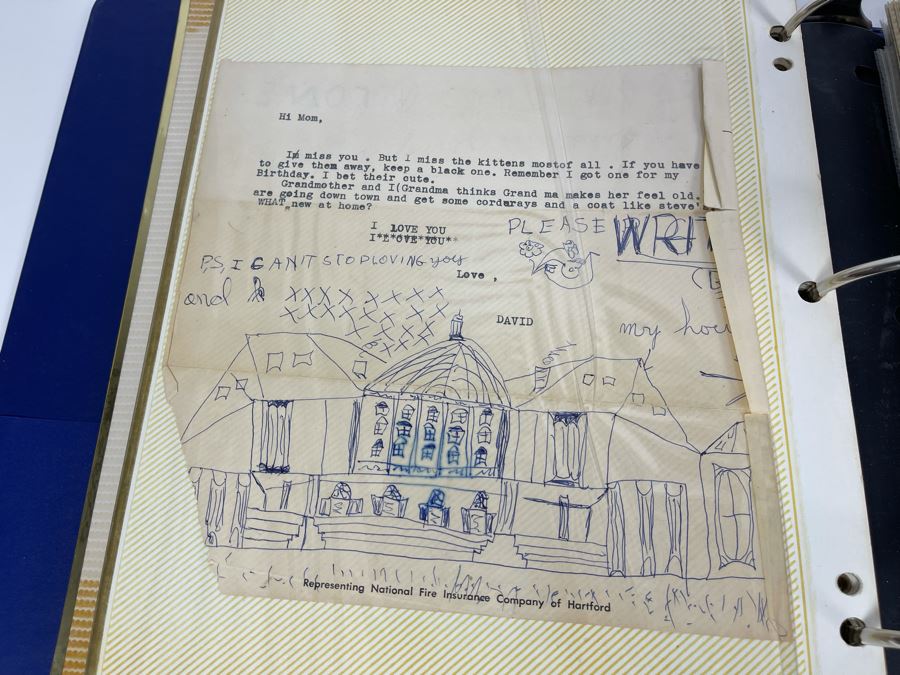 Hi Mom,
I miss you . But I miss the kittens mostof all . If you have
to give them away, keep a black one. Remember I got one for my
Birthday. I bet their cute.
Grandmother and I(Grandma thinks Grand ma makes her feel old.
are going down town and get some cordurays and a coat like steve'
WHAT new at home?
I LOVE YOU
I*L*OVE*YOU*
PLEASE WRIT
P,S, I CAN'T STOP LOVING you
Love ,
and
XXXX XXXXX
XXXX XXXX
XXXXX
XXX
DAVID
my hou
Representing National Fire Insurance Company of Hartford